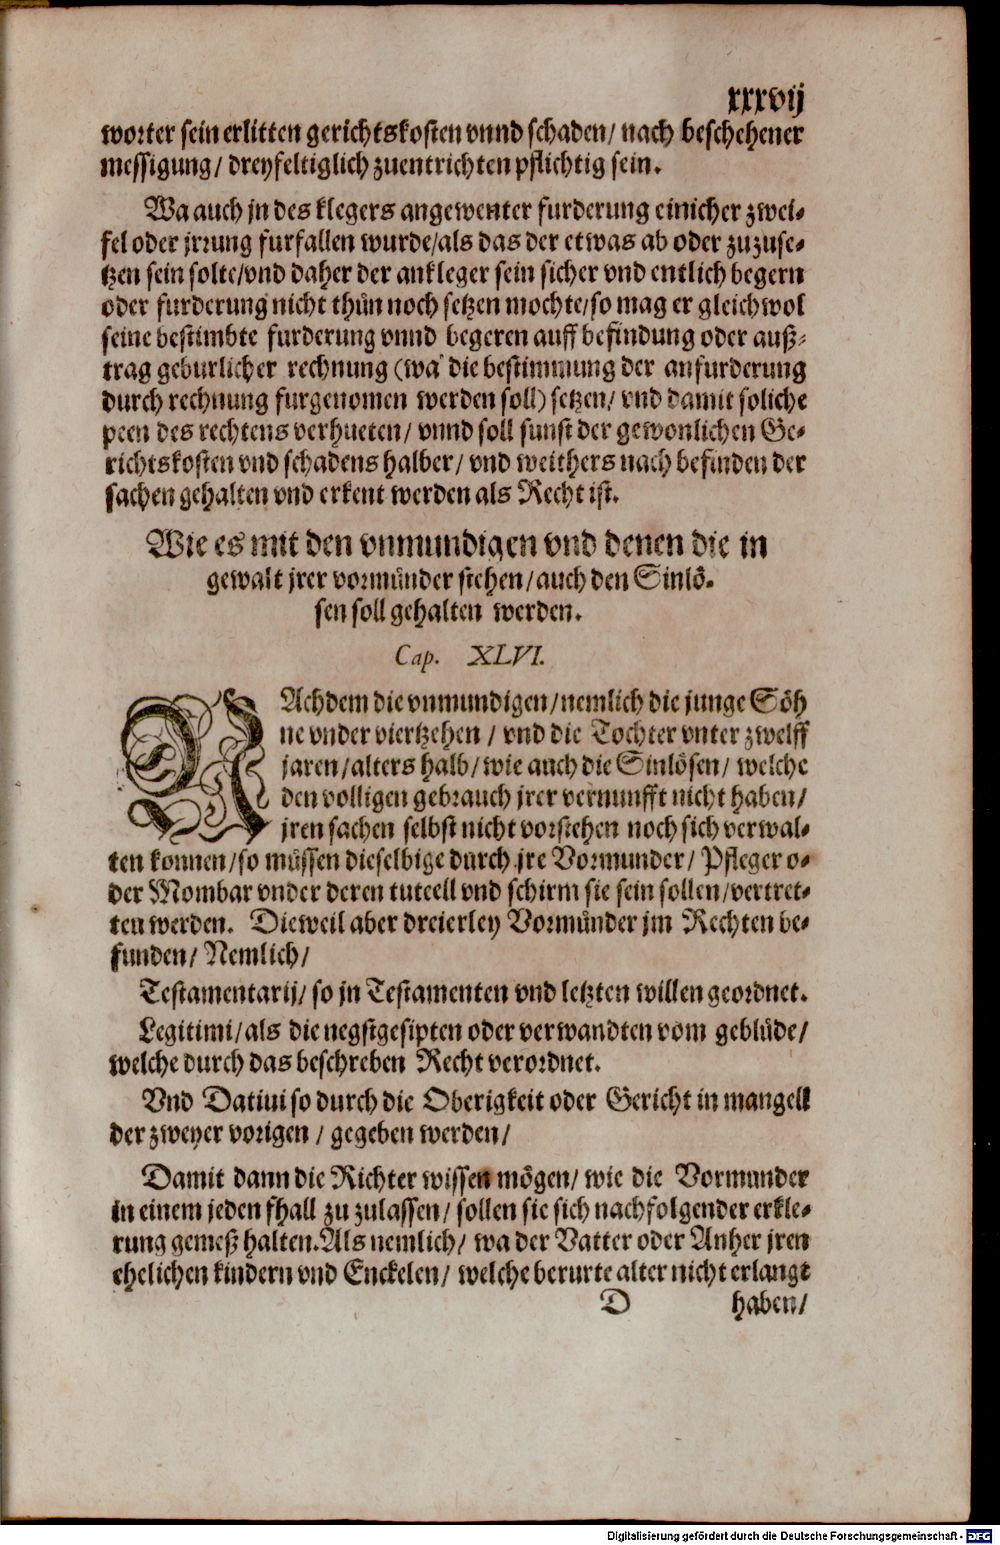 xxxvij
worter sein erlitten gerichtskosten vnnd schaden/ nach beschehener
messigung/ dreyfeltiglich zuentrichten pflichtig sein.
Wa auch jn des klegers angewenter furderung einicher zwei-
fel oder jrrung furfallen wurde/als das der etwas ab oder zuzuse-
tzen sein solte/vnd daher der ankleger sein sicher vnd entlich begern
oder furderung nicht thůn noch setzen mochte/so mag er gleichwol
seine bestimbte furderung vnnd begeren auff befindung oder auß-
trag geburlicher rechnung (wa die bestimmung der anfurderung
durch rechnung furgenomen werden soll) setzen/ vnd damit soliche
peen des rechtens verhueten/ vnnd soll sunst der gewonlichen Ge-
richtskosten vnd schadens halber/ vnd weithers nach befinden der
sachen gehalten vnd erkent werden als Recht ist.
Wie es mit den vnmundigen vnd denen die in
gewalt jrer vormůnder stehen/auch den Sinlö-
sen soll gehalten werden.
Cap. XLVI.
NAchdem die vnmundigen/nemlich die junge Söh
ne vnder viertzehen / vnd die Tochter vnter zwelff
jaren/alters halb/wie auch die Sinlösen/ welche
den volligen gebrauch jrer vernunfft nicht haben/
jren sachen selbst nicht vorstehen noch sich verwal-
ten konnen/so můssen dieselbige durch jre Vormunder/ Pfleger o-
der Mombar vnder deren tuteell vnd schirm sie sein sollen/vertret-
ten werden. Dieweil aber dreierley Vormůnder jm Rechten be-
funden/ Nemlich/
Testamentarij/ so jn Testamenten vnd letzten willen geordnet.
Legitimi/als die negstgesipten oder verwandten vom geblůde/
welche durch das beschreben Recht verordnet.
Vnd Datiui so durch die Oberigkeit oder Gericht in mangell
der zweyer vorigen / gegeben werden/
Damit dann die Richter wissen mögen/ wie die Vormunder
in einem jeden fhall zu zulassen/ sollen sie sich nachfolgender erkle-
rung gemeß halten.Als nemlich/ wa der Vatter oder Anher jren
ehelichen kindern vnd Enckelen/ welche berurte alter nicht erlangt
D haben/
Digitalisierung gefördert durch die Deutsche Forschungsgemeinschaft - DFG